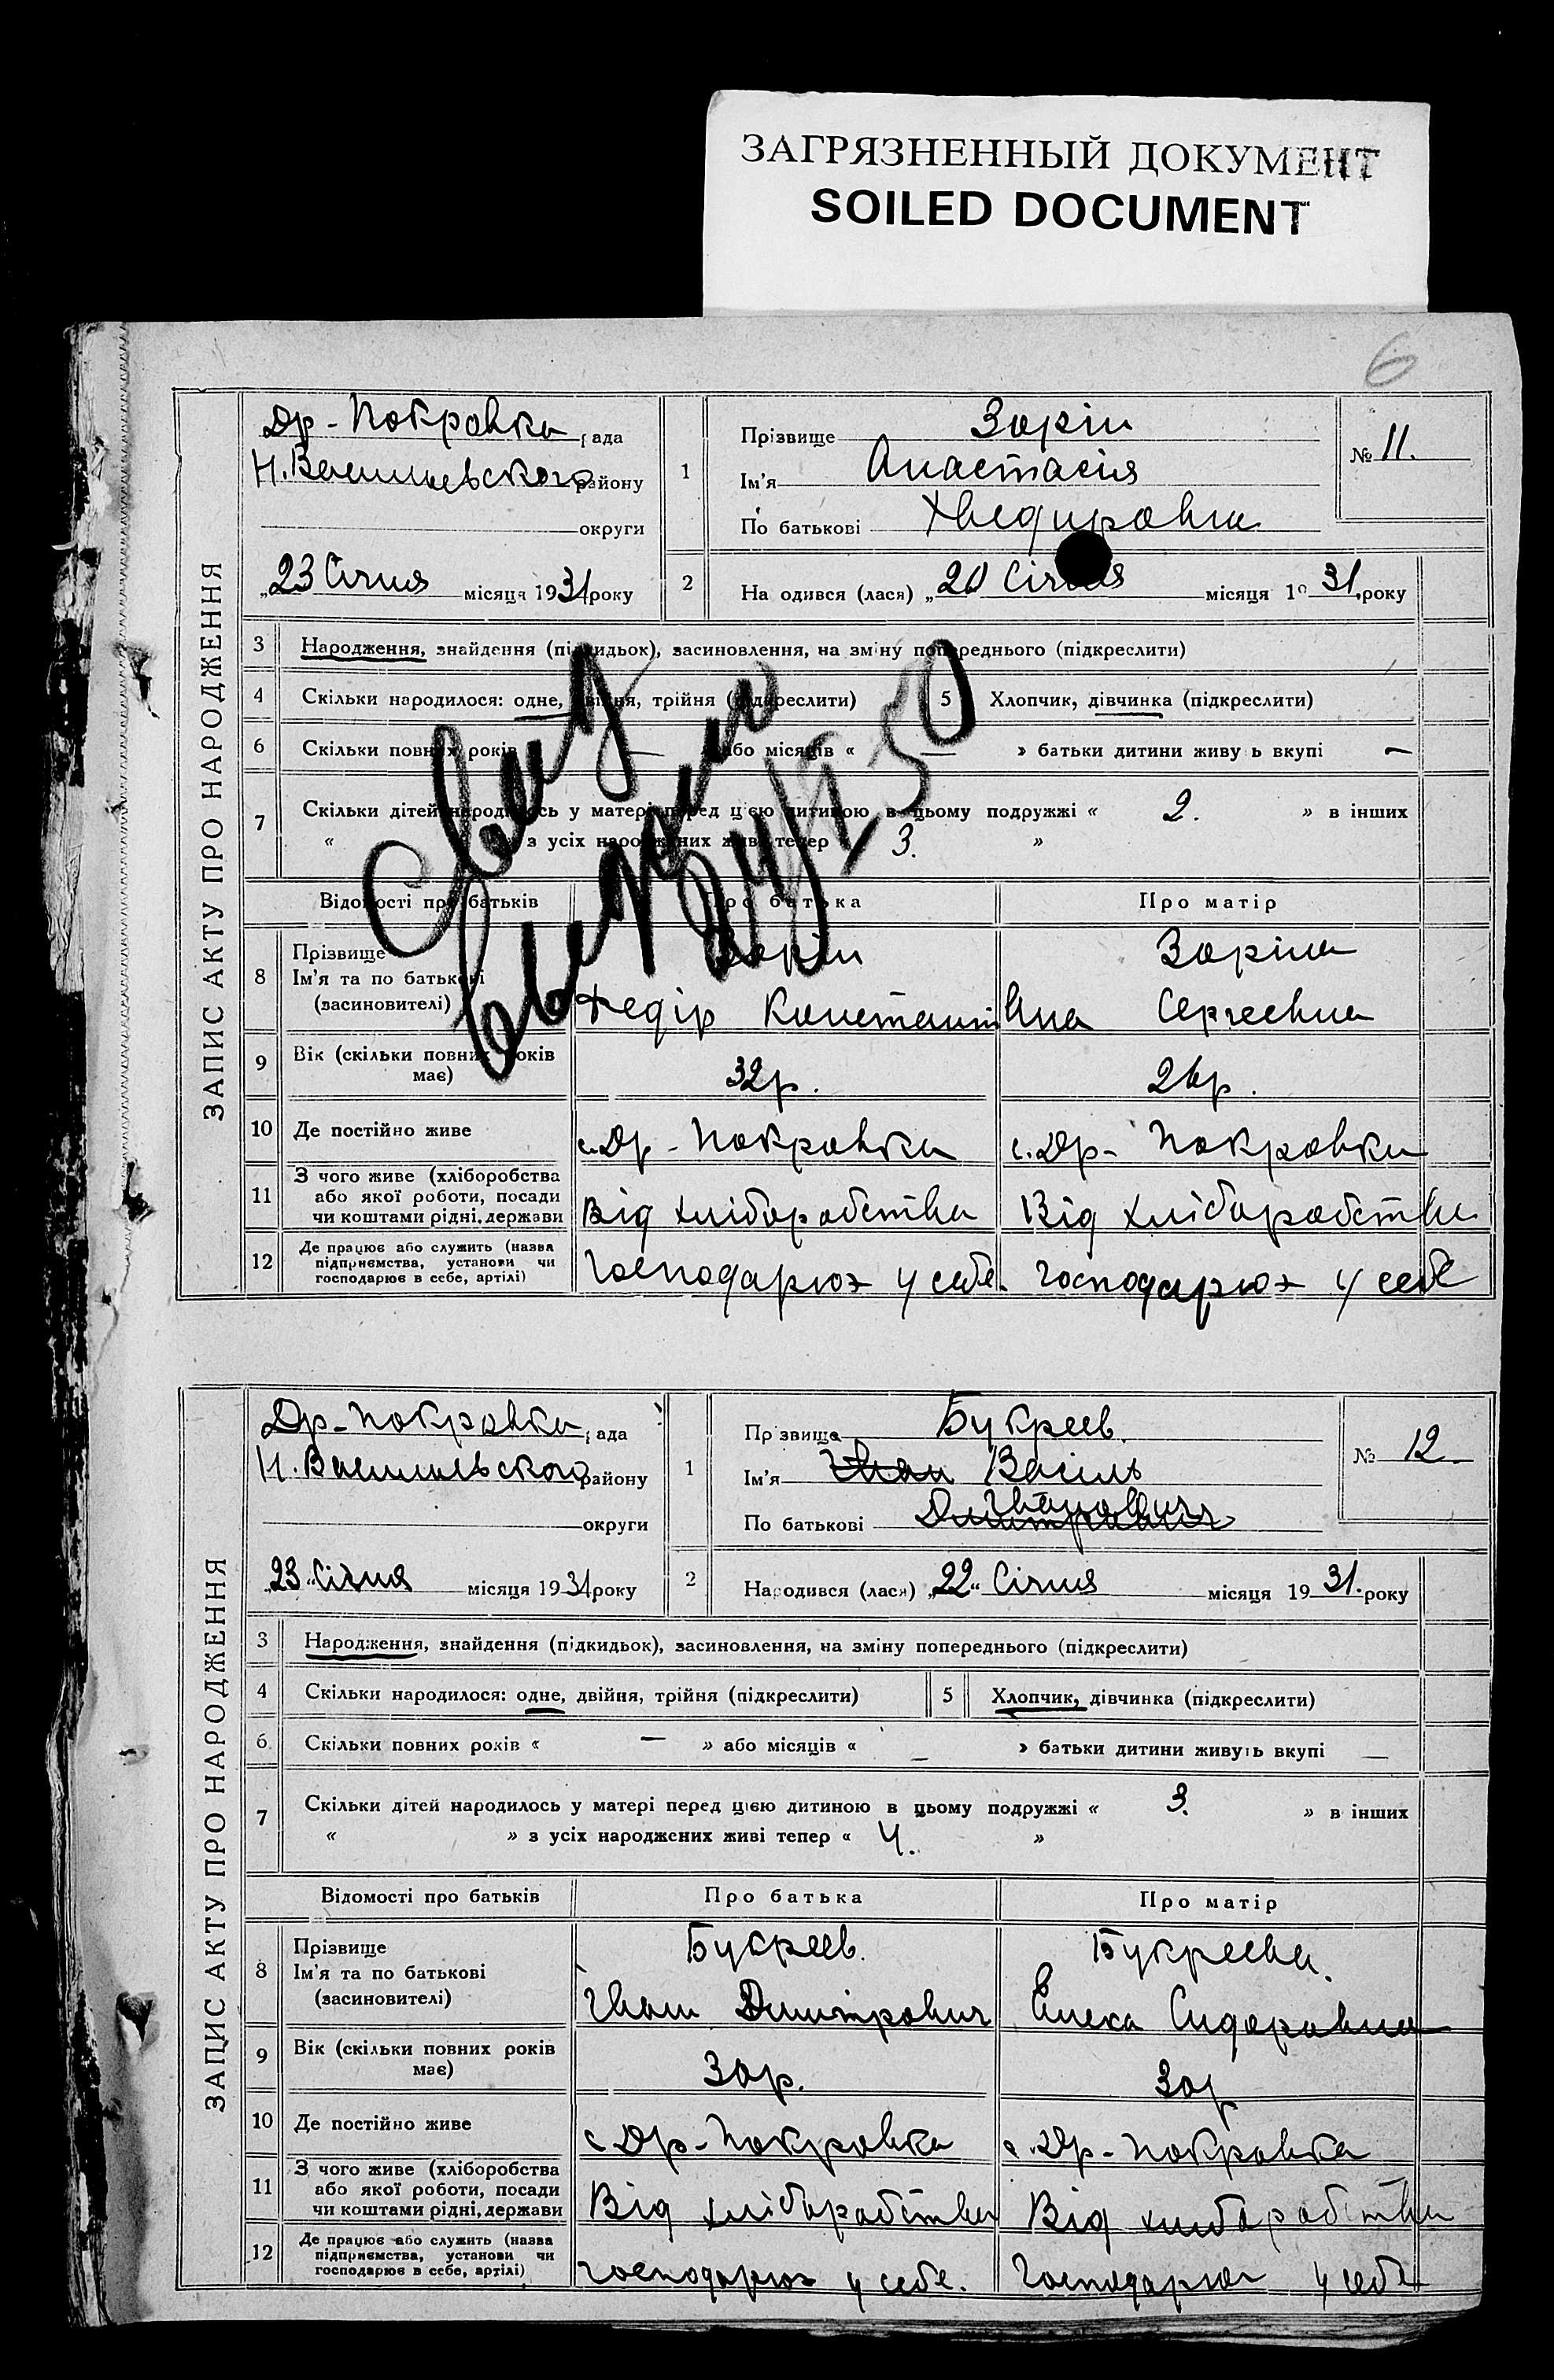 ЗАГРЯЗНЕННЫЙ ДОКУМЕНТ
SOILED DOCUMENT
6
ЗАПИС АКТУ ПРО НАРОДЖЕННЯ
Др-Покровка рада
Н. Васильевского району
округи
„23 Січня місяця 1931 року
1
Прізвище Зорін
Ім'я Анастасія
По батькові Хведировна
№ 11.
2
На одився (лася) „20 Січня місяця 19 31. року
3 Народження, знайдення (підкидьок), засиновлення, на зміну попереднього (підкреслити)
4 Скільки народилося: одне, двійня, трійня (підкреслити) 5 Хлопчик, дівчинка (підкреслити)
6 Скільки повних років — або місяців « — » батьки дитини живу ь вкупі —
7 Скільки дітей народилось у матері перед цією дитиною в цьому подружжі « 2. » в інших
« з усіх народжених живі тепер 3. »
Відомості про батьків Про батька Про матір
8 Прізвище
Ім'я та по батькові
(засиновителі)
Зорін
Федір Констант
Зоріна
Ана Сергеевна
9 Вік (скільки повних років
має)
32р. 26р.
10 Де постійно живе с. Др-Покровка с. Др-Покровка
11 З чого живе (хліборобства
або якої роботи, посади
чи коштами рідні, держави
Від хліборобства Від хліборобства
12 Де працює або служить (назва
підприємства, установи чи
господарює в себе, артілі)
Господарює у себе. Господарює у себе
24/I 50
ЗАПИС АКТУ ПРО НАРОДЖЕННЯ
Др-Покровка рада
Н. Васильевского району
округи
„23 „Січня місяця 1931 року
1
Пр звище Букреев.
Ім'я Іван Васіль
По батькові Дмитрович Іванович
№ 12
2
Народився (лася) „22„ Січня місяця 19 31. року
3 Народження, знайдення (підкидьок), засиновлення, на зміну попереднього (підкреслити)
4 Скільки народилося: одне, двійня, трійня (підкреслити) 5 Хлопчик, дівчинка (підкреслити)
6 Скільки повних років « — » або місяців « — » батьки дитини живуть вкупі —
7 Скільки дітей народилось у матері перед цією дитиною в цьому подружжі « 3. » в інших
« » з усіх народжених живі тепер « 4. »
Відомості про батьків Про батька Про матір
8 Прізвище
Ім'я та по батькові
(засиновителі)
Букреев.
Іван Дмитрович
Букреева.
Сидоровна
9 Вік (скільки повних років
має)
30р. 30р
10 Де постійно живе с Др-Покровка с. Др-Покровка
11 З чого живе (хліборобства
або якої роботи, посади
чи коштами рідні, держави
Від хліборобства Від хліборобства
12 Де працює або служить (назва
підприємства, установи чи
господарює в себе, артілі)
Господарює у себе. Господарює у себе